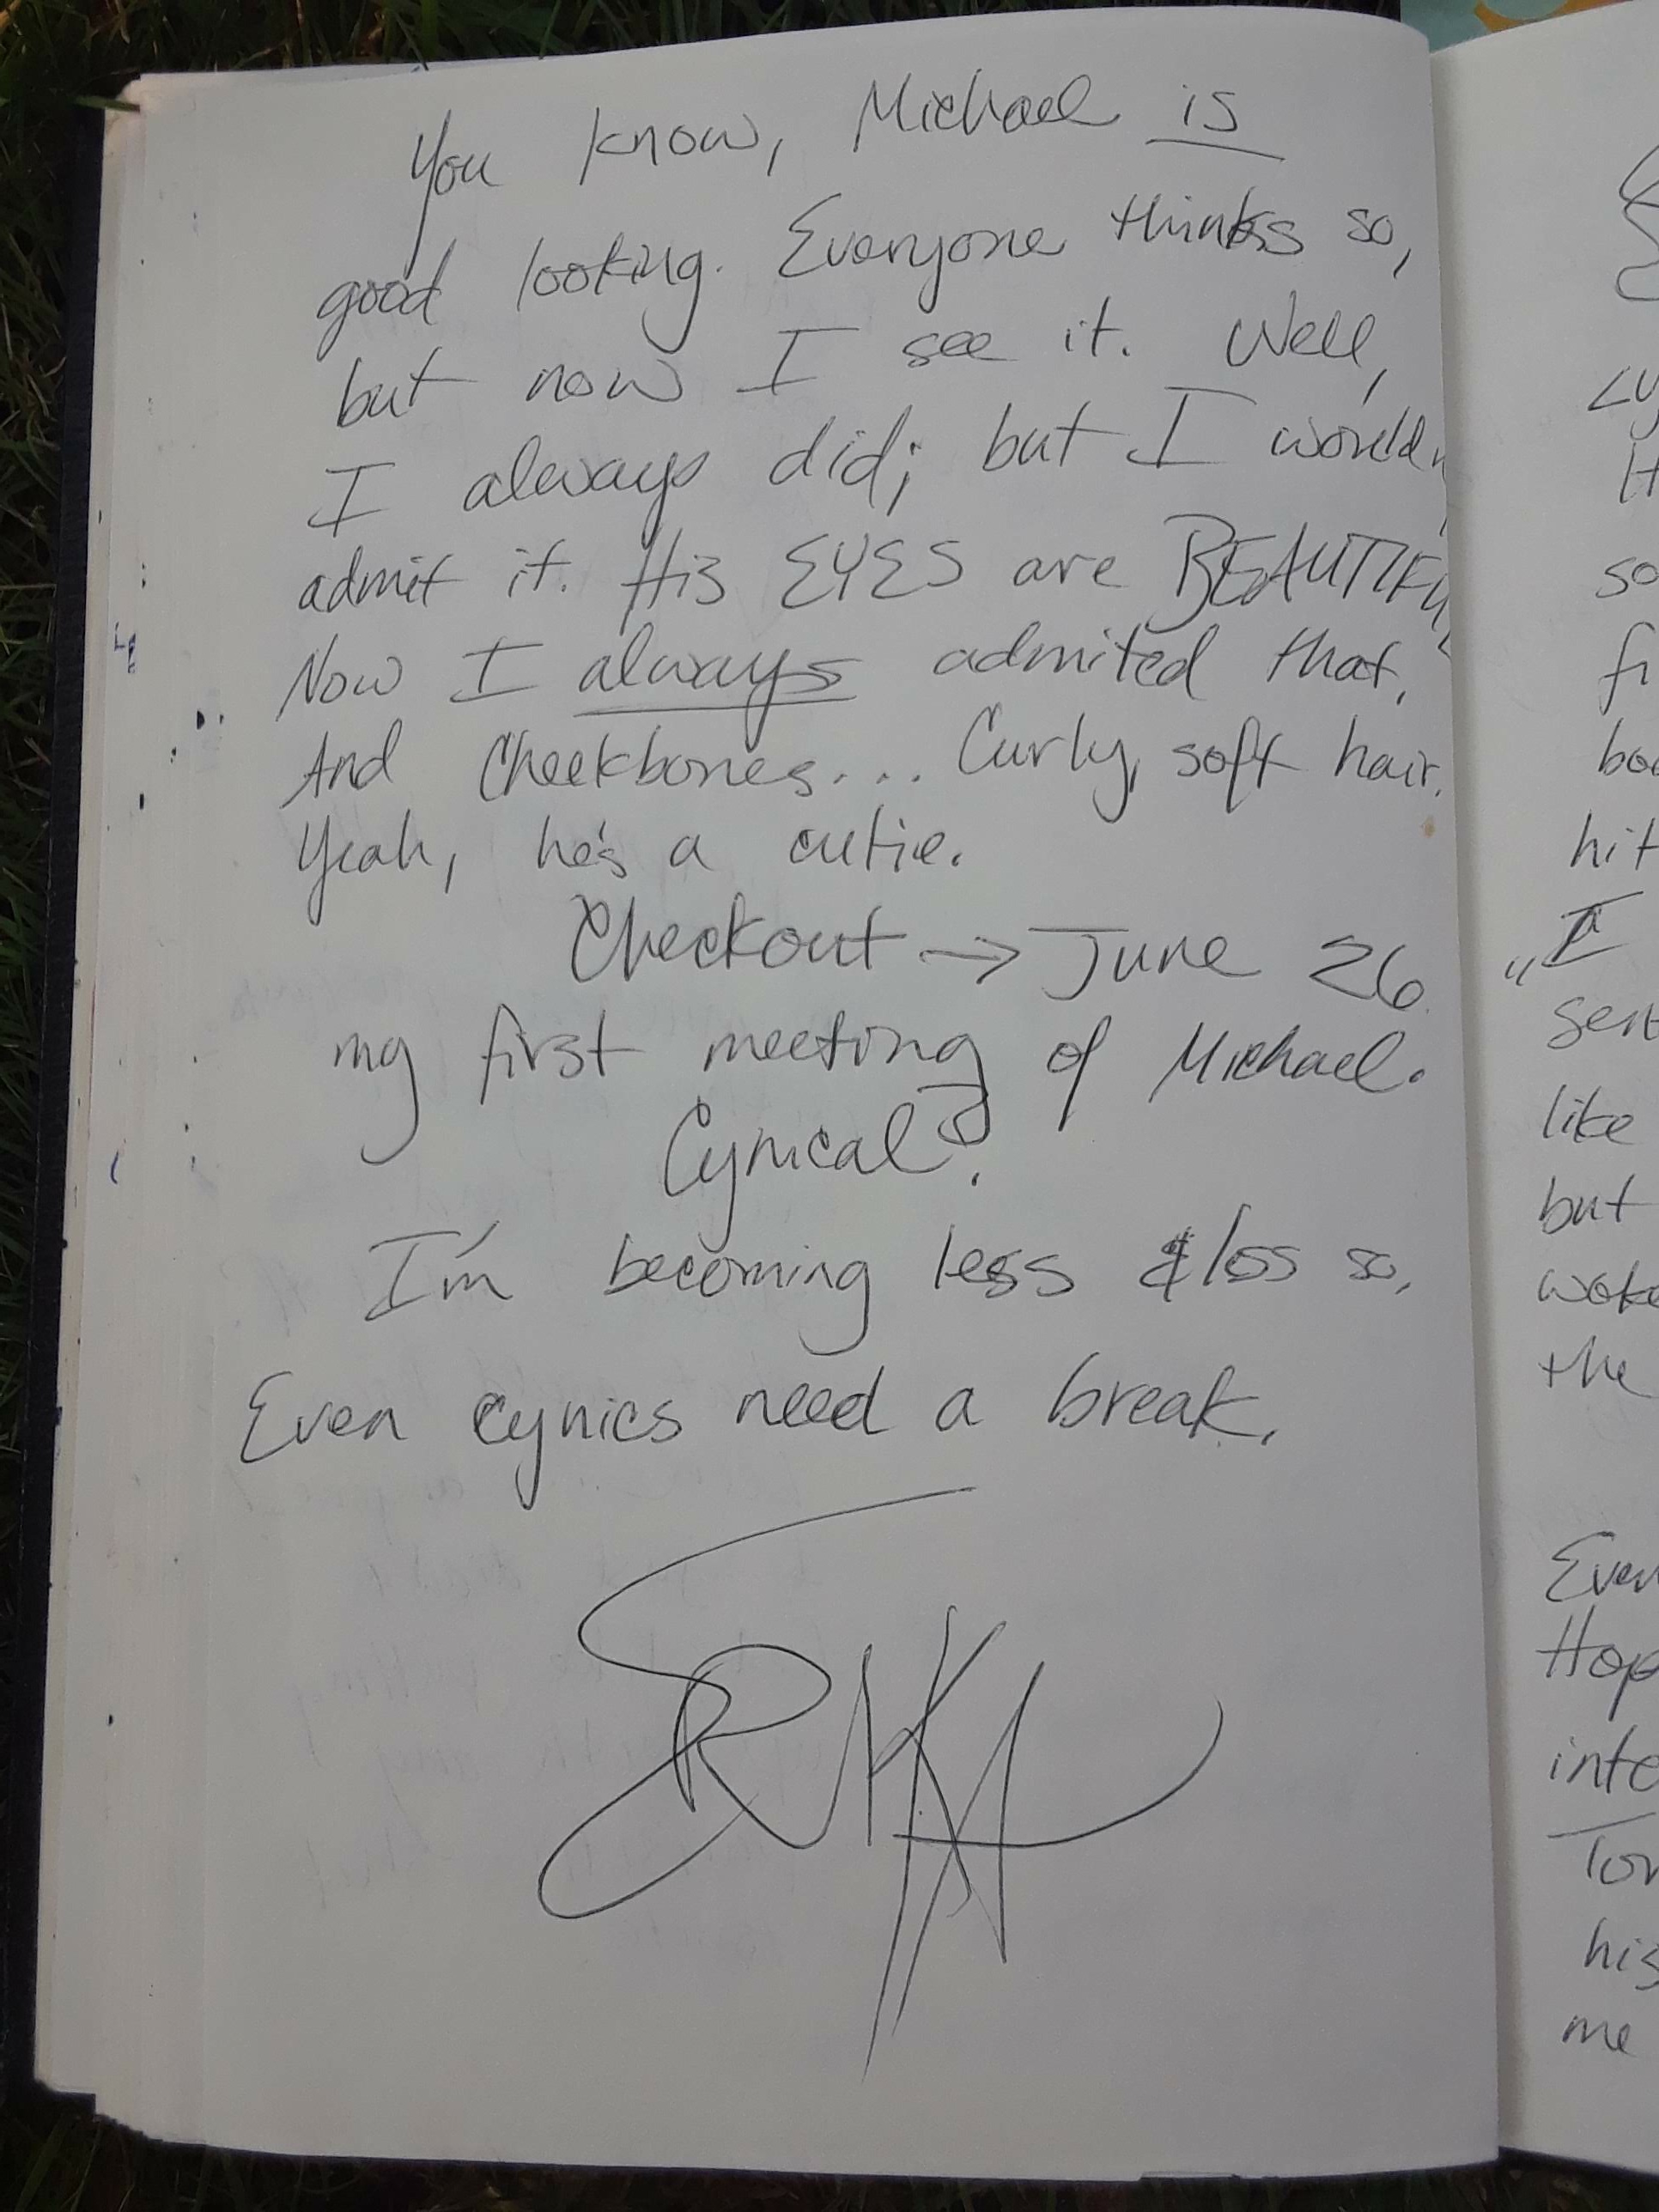 You know, Michael is
good looking. Everyone thinks so,
but now I see it. Well,
I always did; but I wouldn
admit it. His EYES are BEAUTIFUL
Now I always admited that.
And Cheekbones... Curly, soft hair.
Yeah, he's a cutie.
Checkout → June 26
my first meeting of Michael.
Cynical?
I'm becoming less & less so.
Even cynics need a break.
H
so
fi
boo
hit
"I
sent
like
but
woke
the
Even
Hop
inte
Tor
his
me